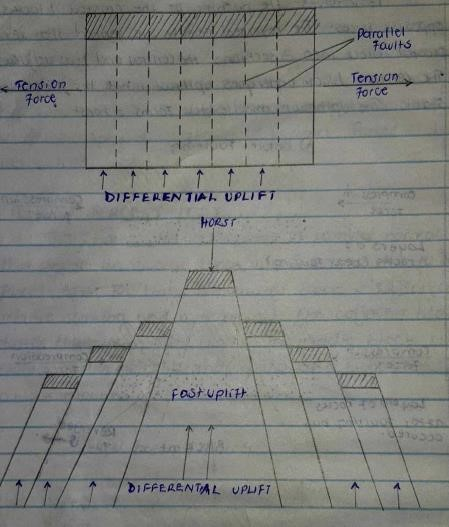 Parallel
Faults
Tension
Force
Tension
Force
DIFFERENTIAL UPLIFT
HORST
FAST UPLIFT
DIFFERENTIAL UPLIFT